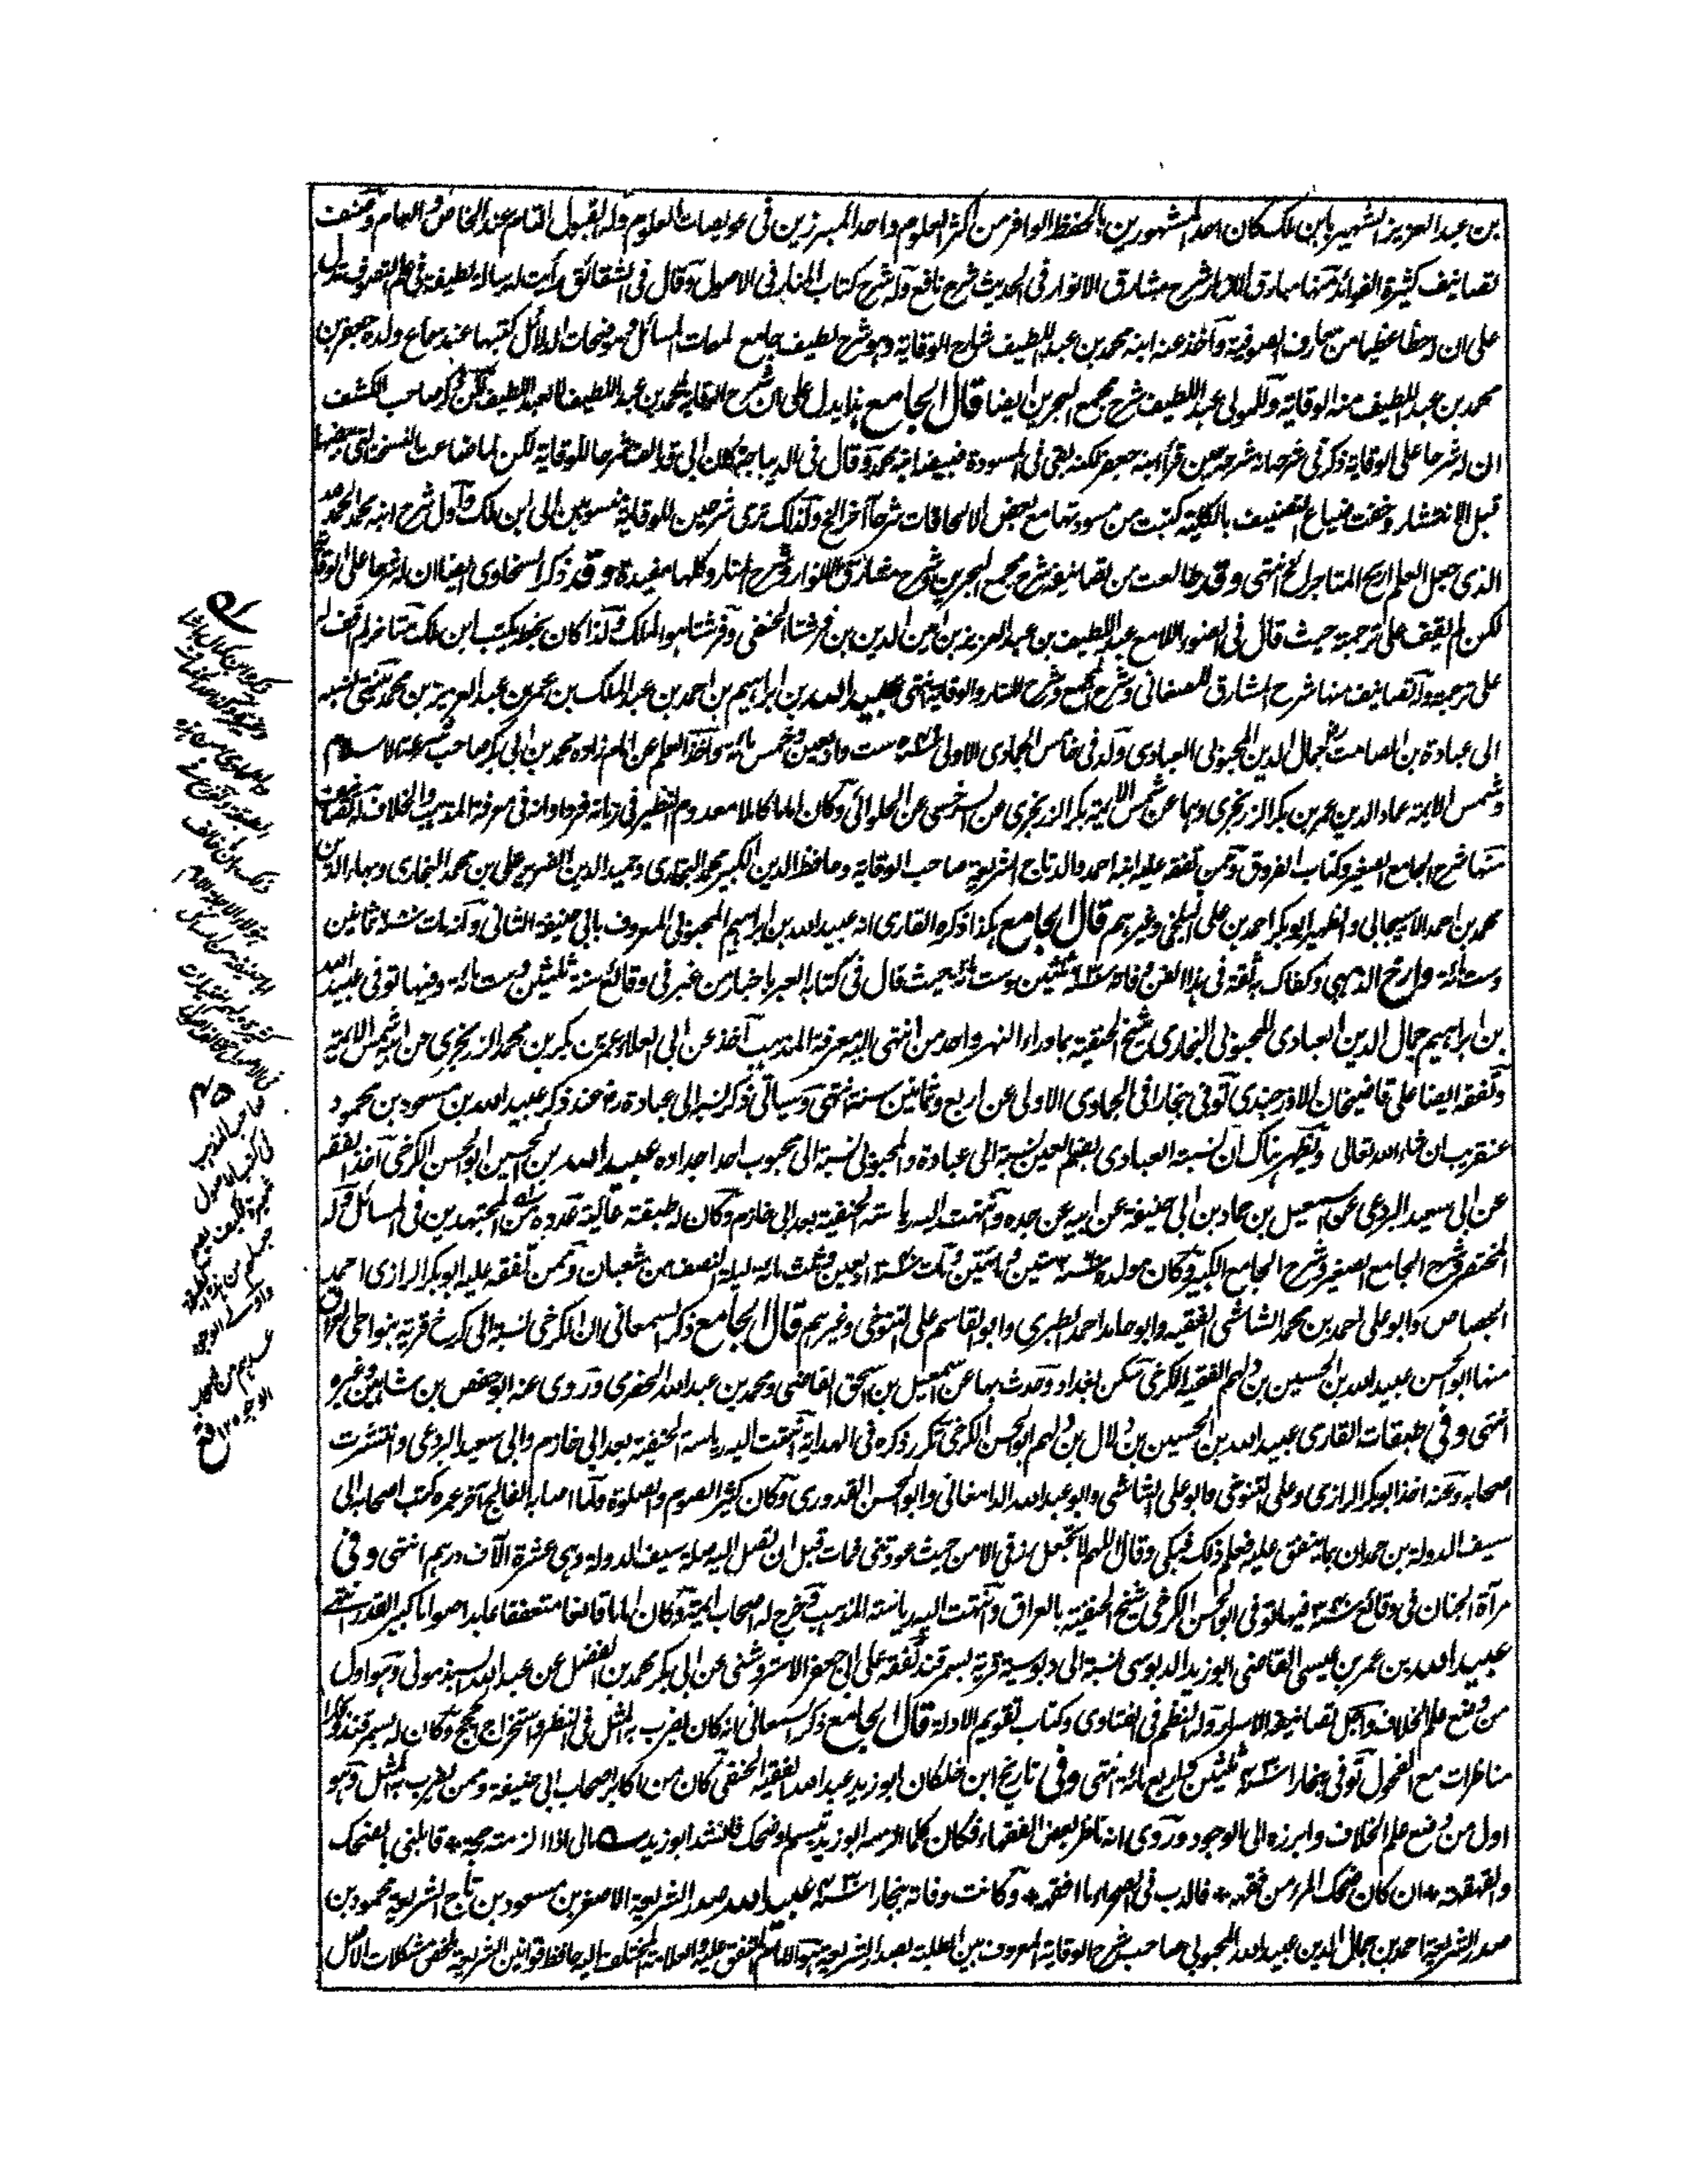 بن عبد العزيز الشهير بابن ملك كان احد المشهورين بالحفظ الوافر من اكثر العلوم واحد المبرزين فى عويصات العلوم وله القبول التام عند الخاص والعام وصنف
تصانيف كثيرة الفوائد منها مبارق الازهار شرح مشارق الانوار فى الحديث شرح نافع وله شرح كتاب المنار فى الاصول وقال فى الشقائق رأيت له رسالة لطيفة فى علم التصوف تدل
على ان له حظا عظيما من معارف الصوفية وأخذ عنه ابنه محمد بن عبد اللطيف شارح الوقاية وهو شرح لطيف جامع لمعات المسائل وموضحات الدلائل كتبها عند سماع ولده جعفر بن
محمد بن عبد اللطيف منه الوقاية وللمولى عبد اللطيف شرح مجمع البحرين ايضا قال الجامع هذا يدل على ان شرح الوقاية لمحمد بن عبد اللطيف لا لعبد اللطيف لكن ذكر صاحب الكشف
ان له شرحا على الوقاية ذكر فى شرحه انه شرحه حين قرأ ابنه جعفر لكنه بقى فى المسودة فبيضه ابنه محمد وقال فى الديباجة كان ابى قد الف شرحا للوقاية لكن لما ضاعت النسخة التى بيضها
قبل الانتشار وخفت ضياع التصنيف بالكلية كتبت من مسودتها مع بعض الالحاقات شرحا آخر الخ ولذلك ترى شرحين للوقاية منسوبين الى ابن ملك واول شرح ابنه محمد الحمد لله
الذى جعل العلم اربح المتاجر الخ انتهى وقد طالعت من تصانيفه شرح مجمع البحرين وشرح مشارق الانوار وشرح المنار وكلها مفيدة وقد ذكر السخاوى ايضا ان له شرحا على الوقاية
لكن لم يقف على ترجمة حيث قال فى الضوء اللامع عبد اللطيف بن عبد العزيز بن امين الدين بن فرشتا الحنفى وفرشتا هو الملك ولذا كان بخطه يكتب ابن ملك متاخر لم اقف له
على ترجمة وله تصانيف منها شرح المشارق للصغانى وشرح المجمع وشرح المنار والوقاية انتهى عبيد الله بن ابراهيم بن احمد بن عبد الملك بن عمر بن عبد العزيز بن محمد ينتهى نسبه
الى عبادة بن الصامت جمال الدين المحبوبى العبادى ولد فى خامس الجمادى الاولى سنة ٥٤٦ ست واربعين وخمس مائة واخذ العلم عن امام زاده محمد بن ابى بكر صاحب شرعة الاسلام
وشمس الائمة عماد الدين عمر بن بكر الزرنجرى وهما عن شمس الائمة بكر الزرنجرى عن السرخسى عن الحلوائى وكان اماما كاملا معدوم النظير فى زمانه فردا اوانه فى معرفة المذهب والخلاف له تصانيف
منها شرح الجامع الصغير وكتاب الفروق وممن تفقه عليه ابنه احمد والد تاج الشريعة صاحب الوقاية وحافظ الدين الكبير محمد البخارى وحميد الدين الضرير على بن محمد البخارى وبهاء الدين
محمد بن احمد الاسبيجابى والظهير ابو بكر احمد بن على البلخى وغيرهم قال الجامع هكذا ذكره القارى انه عبيد الله بن ابراهيم المحبوبى المعروف بابى حنيفة الثانى وانه مات سنة ٦٨٠ ثمانين
وست مائة وارخ الذهبى وكفاك به ثقة فى هذا الفن وفاته سنة ٦٣٠ ثلثين وست مائة حيث قال فى كتابه العبر باخبار من غبر فى وقائع سنة ثلثين وست مائة وفيها توفى عبيد الله
بن ابراهيم جمال الدين العبادى المحبوبى البخارى شيخ الحنفية بماوراء النهر واحد من انتهى اليه معرفة المذهب أخذ عن ابى العلاء عمر بن بكر بن محمد الزرنجرى عن ابيه شمس الائمة
وتفقه ايضا على قاضيخان الاوزجندى توفى ببخارا فى الجمادى الاولى عن اربع وثمانين سنة انتهى وسيأتى ذكر نسبه الى عبادة رض عند ذكر عبيد الله بن مسعود بن محمود
عنقريب ان شاء الله تعالى ويظهر هناك ان نسبة العبادى بضم العين نسبة الى عبادة والمحبوبى نسبة الى محبوب احد اجداده عبيد الله بن الحسين ابو الحسن الكرخى أخذ الفقه
عن ابى سعيد البردعى عن اسمعيل بن حماد بن ابى حنيفة عن ابيه عن جده وانتهت اليه رياسة الحنفية بعد ابى خازم وكان له طبقة عالية عدوه من المجتهدين فى المسائل وله
المختصر وشرح الجامع الصغير وشرح الجامع الكبير وكان مولده سنة ٢٦٠ ستين ومائتين ومات سنة ٣٤٠ اربعين وثلث مائة ليلة النصف من شعبان وممن تفقه عليه ابو بكر الرازى احمد
الجصاص وابو على احمد بن محمد الشاشى الفقيه وابو حامد احمد الطبرى وابو القاسم على التنوخى وغيرهم قال الجامع ذكر السمعانى ان الكرخى نسبة الى كرخ قرية بنواحى العراق
منها ابو الحسن عبيد الله بن الحسين بن دلهم الفقيه الكرخى سكن بغداد وحدث بها عن اسمعيل بن اسحق القاضى ومحمد بن عبد الله الحضرى وروى عنه ابو حفص بن شاهين وغيره
انتهى وفى طبقات القارى عبيد الله بن الحسين بن دلال بن دلهم ابو الحسن الكرخى تكرر ذكره فى الهداية انتهت اليه رياسة الحنفية بعد ابى خازم وابى سعيد البردعى وانتشرت
اصحابه وعنه اخذ ابو بكر الرازى وعلى التنوخى وابو على الشاشى وابو عبد الله الدامغانى وابو الحسن القدورى وكان كثير الصوم والصلوة ولما اصابه الفالج آخر عمره كتب اصحابه الى
سيف الدولة بن حمدان بما ينفق عليه فعلم ذلك فبكى وقال اللهم لا تجعل رزقى الا من حيث عودتنى فمات قبل ان تصل اليه صلة سيف الدولة وهى عشرة آلاف درهم انتهى وفى
مرآة الجنان فى وقائع سنة ٣٤٠ فيها توفى ابو الحسن الكرخى شيخ الحنفية بالعراق وانتهت اليه رياسة المذهب وخرج له اصحاب ائمة وكان اماما قانعا متعففا عابدا صواما كبير القدر انتهى
عبيد الله بن عمر بن عيسى القاضى ابو زيد الدبوسى نسبة الى دبوسية قرية بسمرقند تفقه على ابى جعفر الاستروشنى عن ابى بكر محمد بن الفضل عن عبد الله السبذمونى وهو اول
من وضع علم الخلاف واجل تصانيفه الاسرار وله النظم فى الفتاوى وكتاب تقويم الادلة قال الجامع ذكر السمعانى انه كان يضرب به المثل فى النظر واستخراج الحجج وكان له بسمرقند وبخارا
مناظرات مع الفحول توفى ببخارا سنة ٤٣٠ ثلثين واربع مائة انتهى وفى تاريخ ابن خلكان ابو زيد عبد الله الفقيه الحنفى كان من اكابر اصحاب ابى حنيفة وممن يضرب به المثل وهو
اول من وضع علم الخلاف وابرزه الى الوجود وروى انه ناظر بعض الفقهاء فكان كلما الزمه ابو زيد تبسم او ضحك فانشد ابو زيد ؎ مالى اذا الزمته حجة * قابلنى بالضحك
والقهقهة * ان كان ضحك المرء من فقهه * فالدب فى الصحراء ما افقهه * وكانت وفاته ببخارا سنة ٤٣٠ عبيد الله صدر الشريعة الاصغر بن مسعود بن تاج الشريعة محمود بن
صدر الشريعة احمد بن جمال الدين عبيد الله المحبوبى صاحب شرح الوقاية المعروف بين الطلبة بصدر الشريعة هو الامام المتفق عليه والعلامة المختلف اليه حافظ قوانين الشريعة ملخص مشكلات الاصل